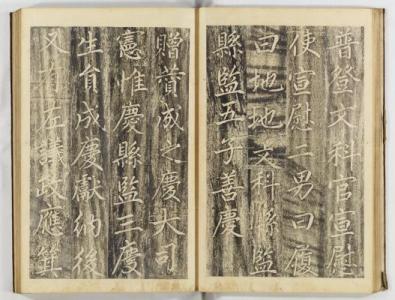 普登文科官宣慰
使宣慰二男曰履
曰地地文科縣監
縣監五子善慶
贈贊成之慶大司
憲惟慶縣監三慶
生員成慶獻納後
又有左議政應箕